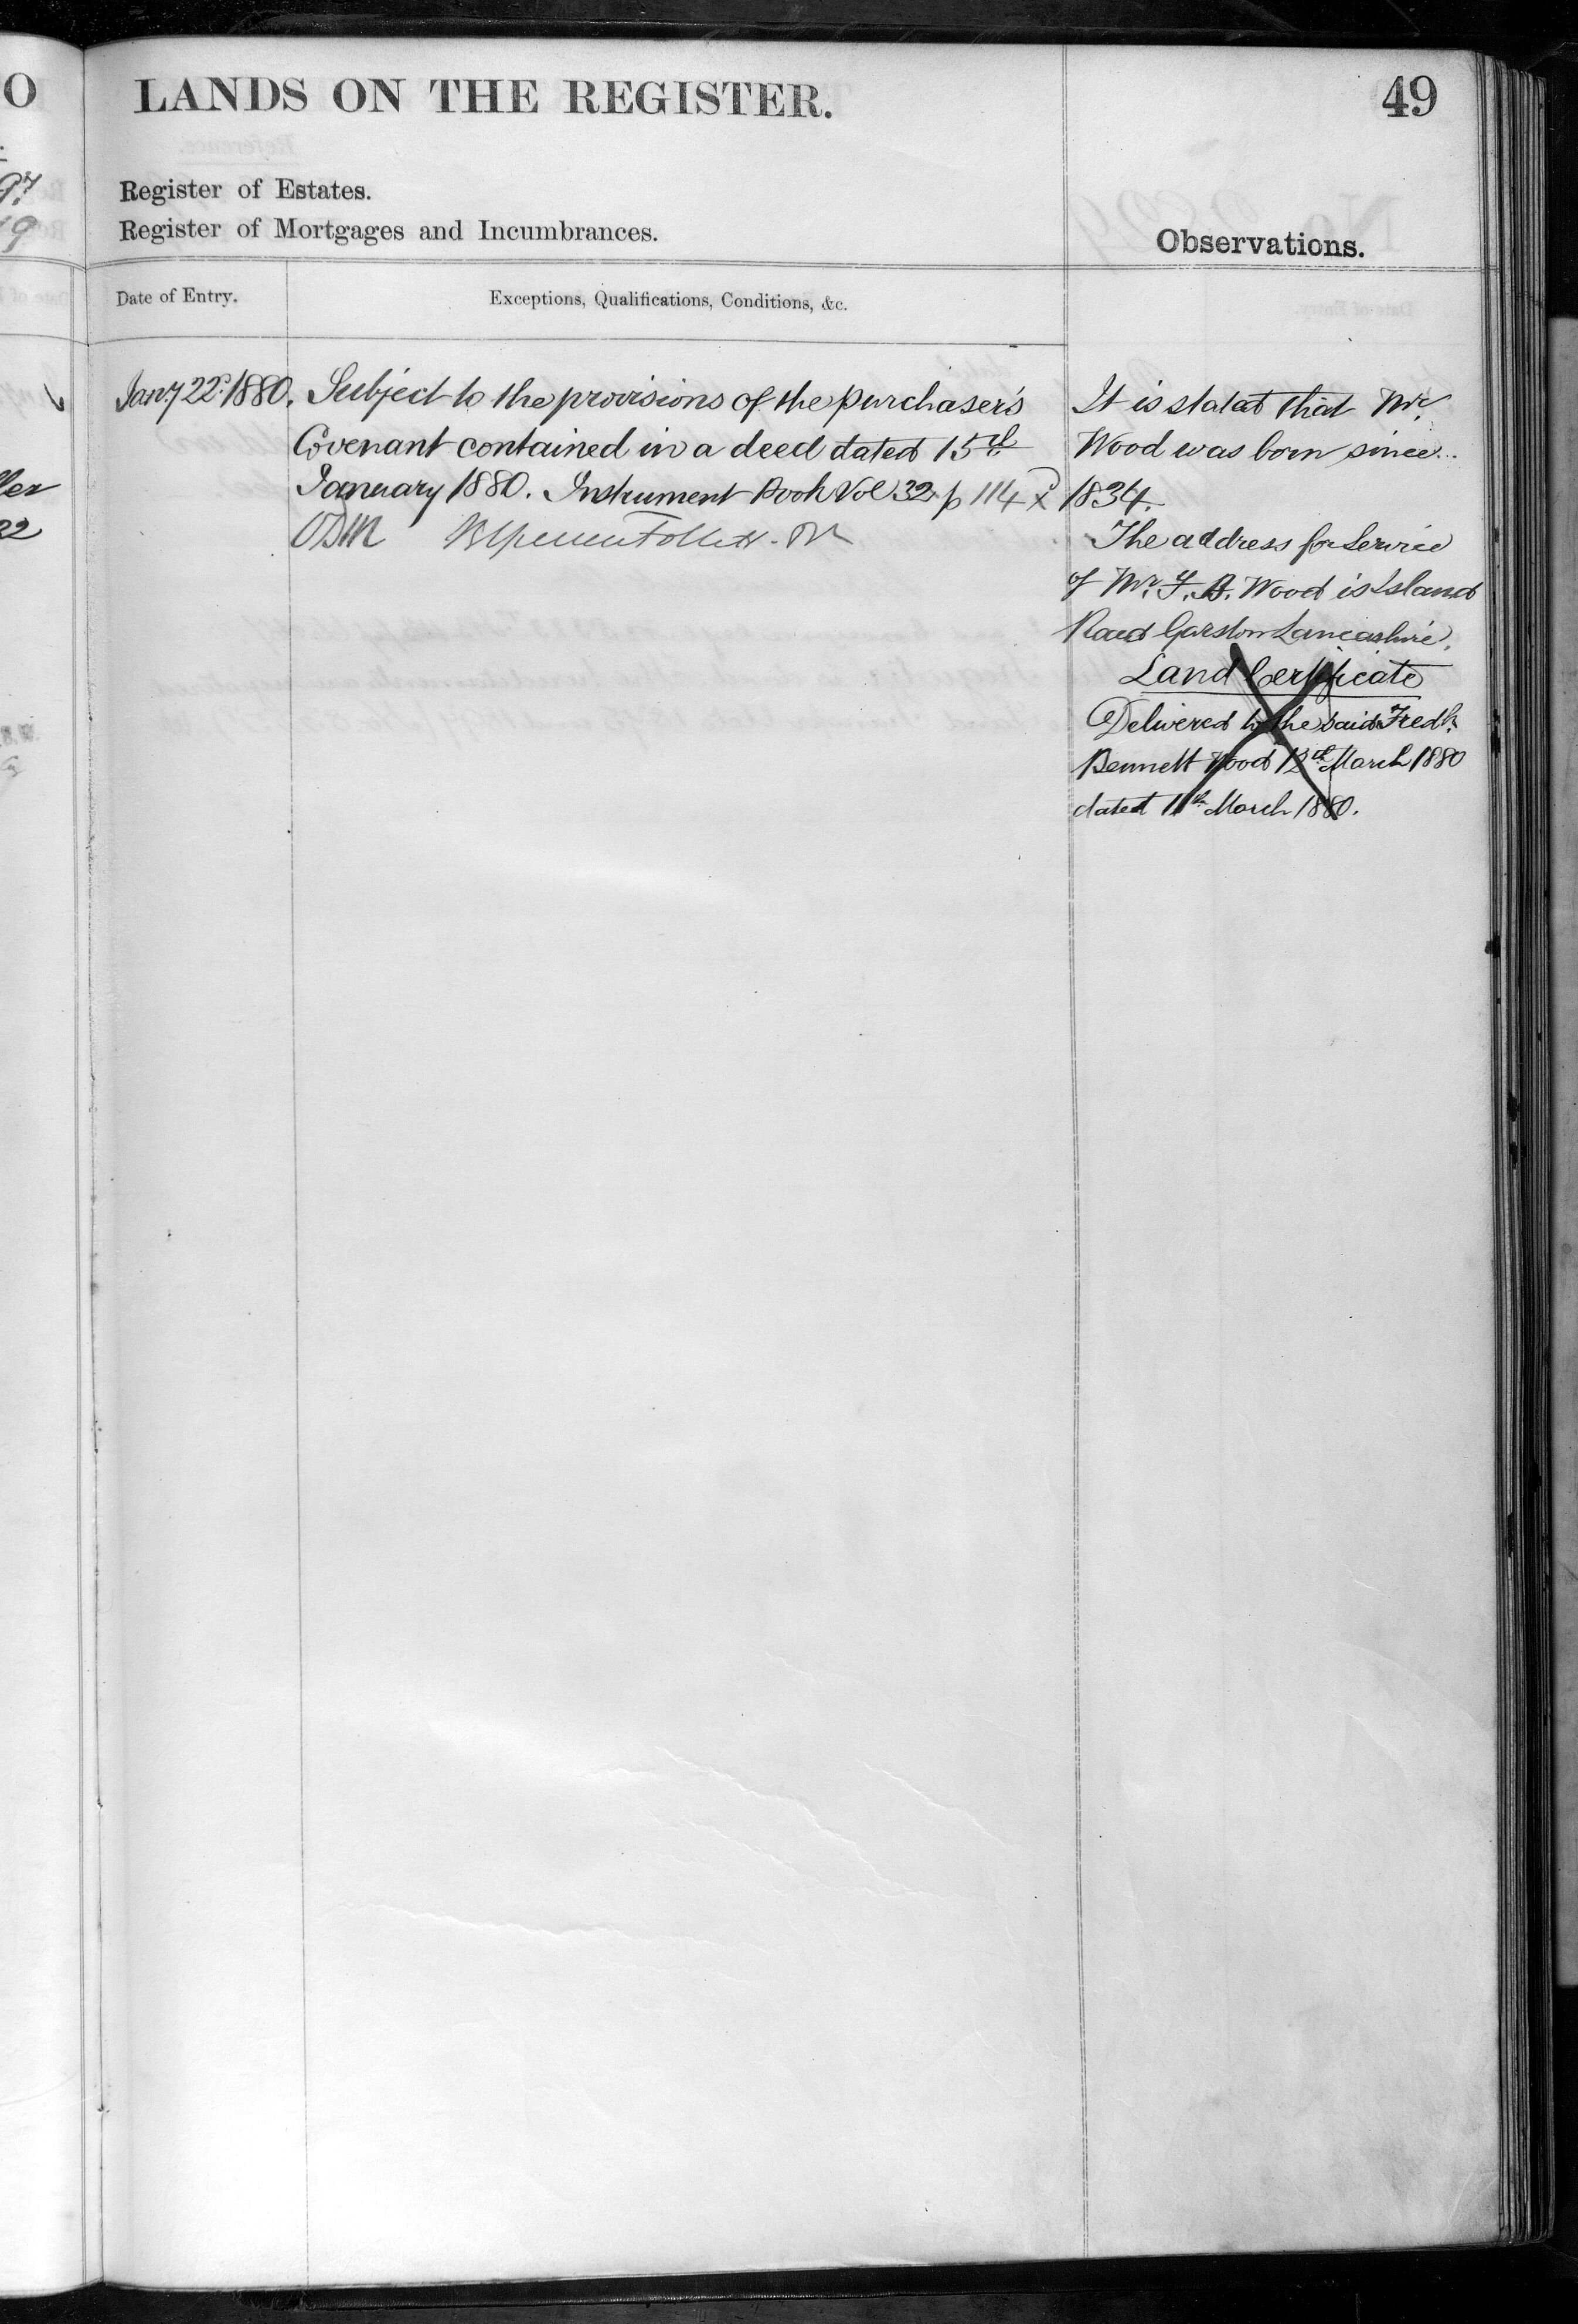 LANDS ON THE REGISTER.
49
Register of Estates.
Register of Mortgages and Incumbrances.
Observations.
Date of Entry.
Exceptions, Qualifications, Conditions, &c.
Jany 22d 1880. Subject to the provisions of the purchaser's
Covenant contained in a deed dated 15th
January 1880. Instrument Book Vol 32 p 114
It is stated that Mr.
Wood was born since
1834.
The address for service
of Mr. F. B. Wood is Island
Road Garston Lancashire.
Land Certificate
Delivered to the said Fredk.
Bennett Wood 12th March 1880
dated 11th March 1880.